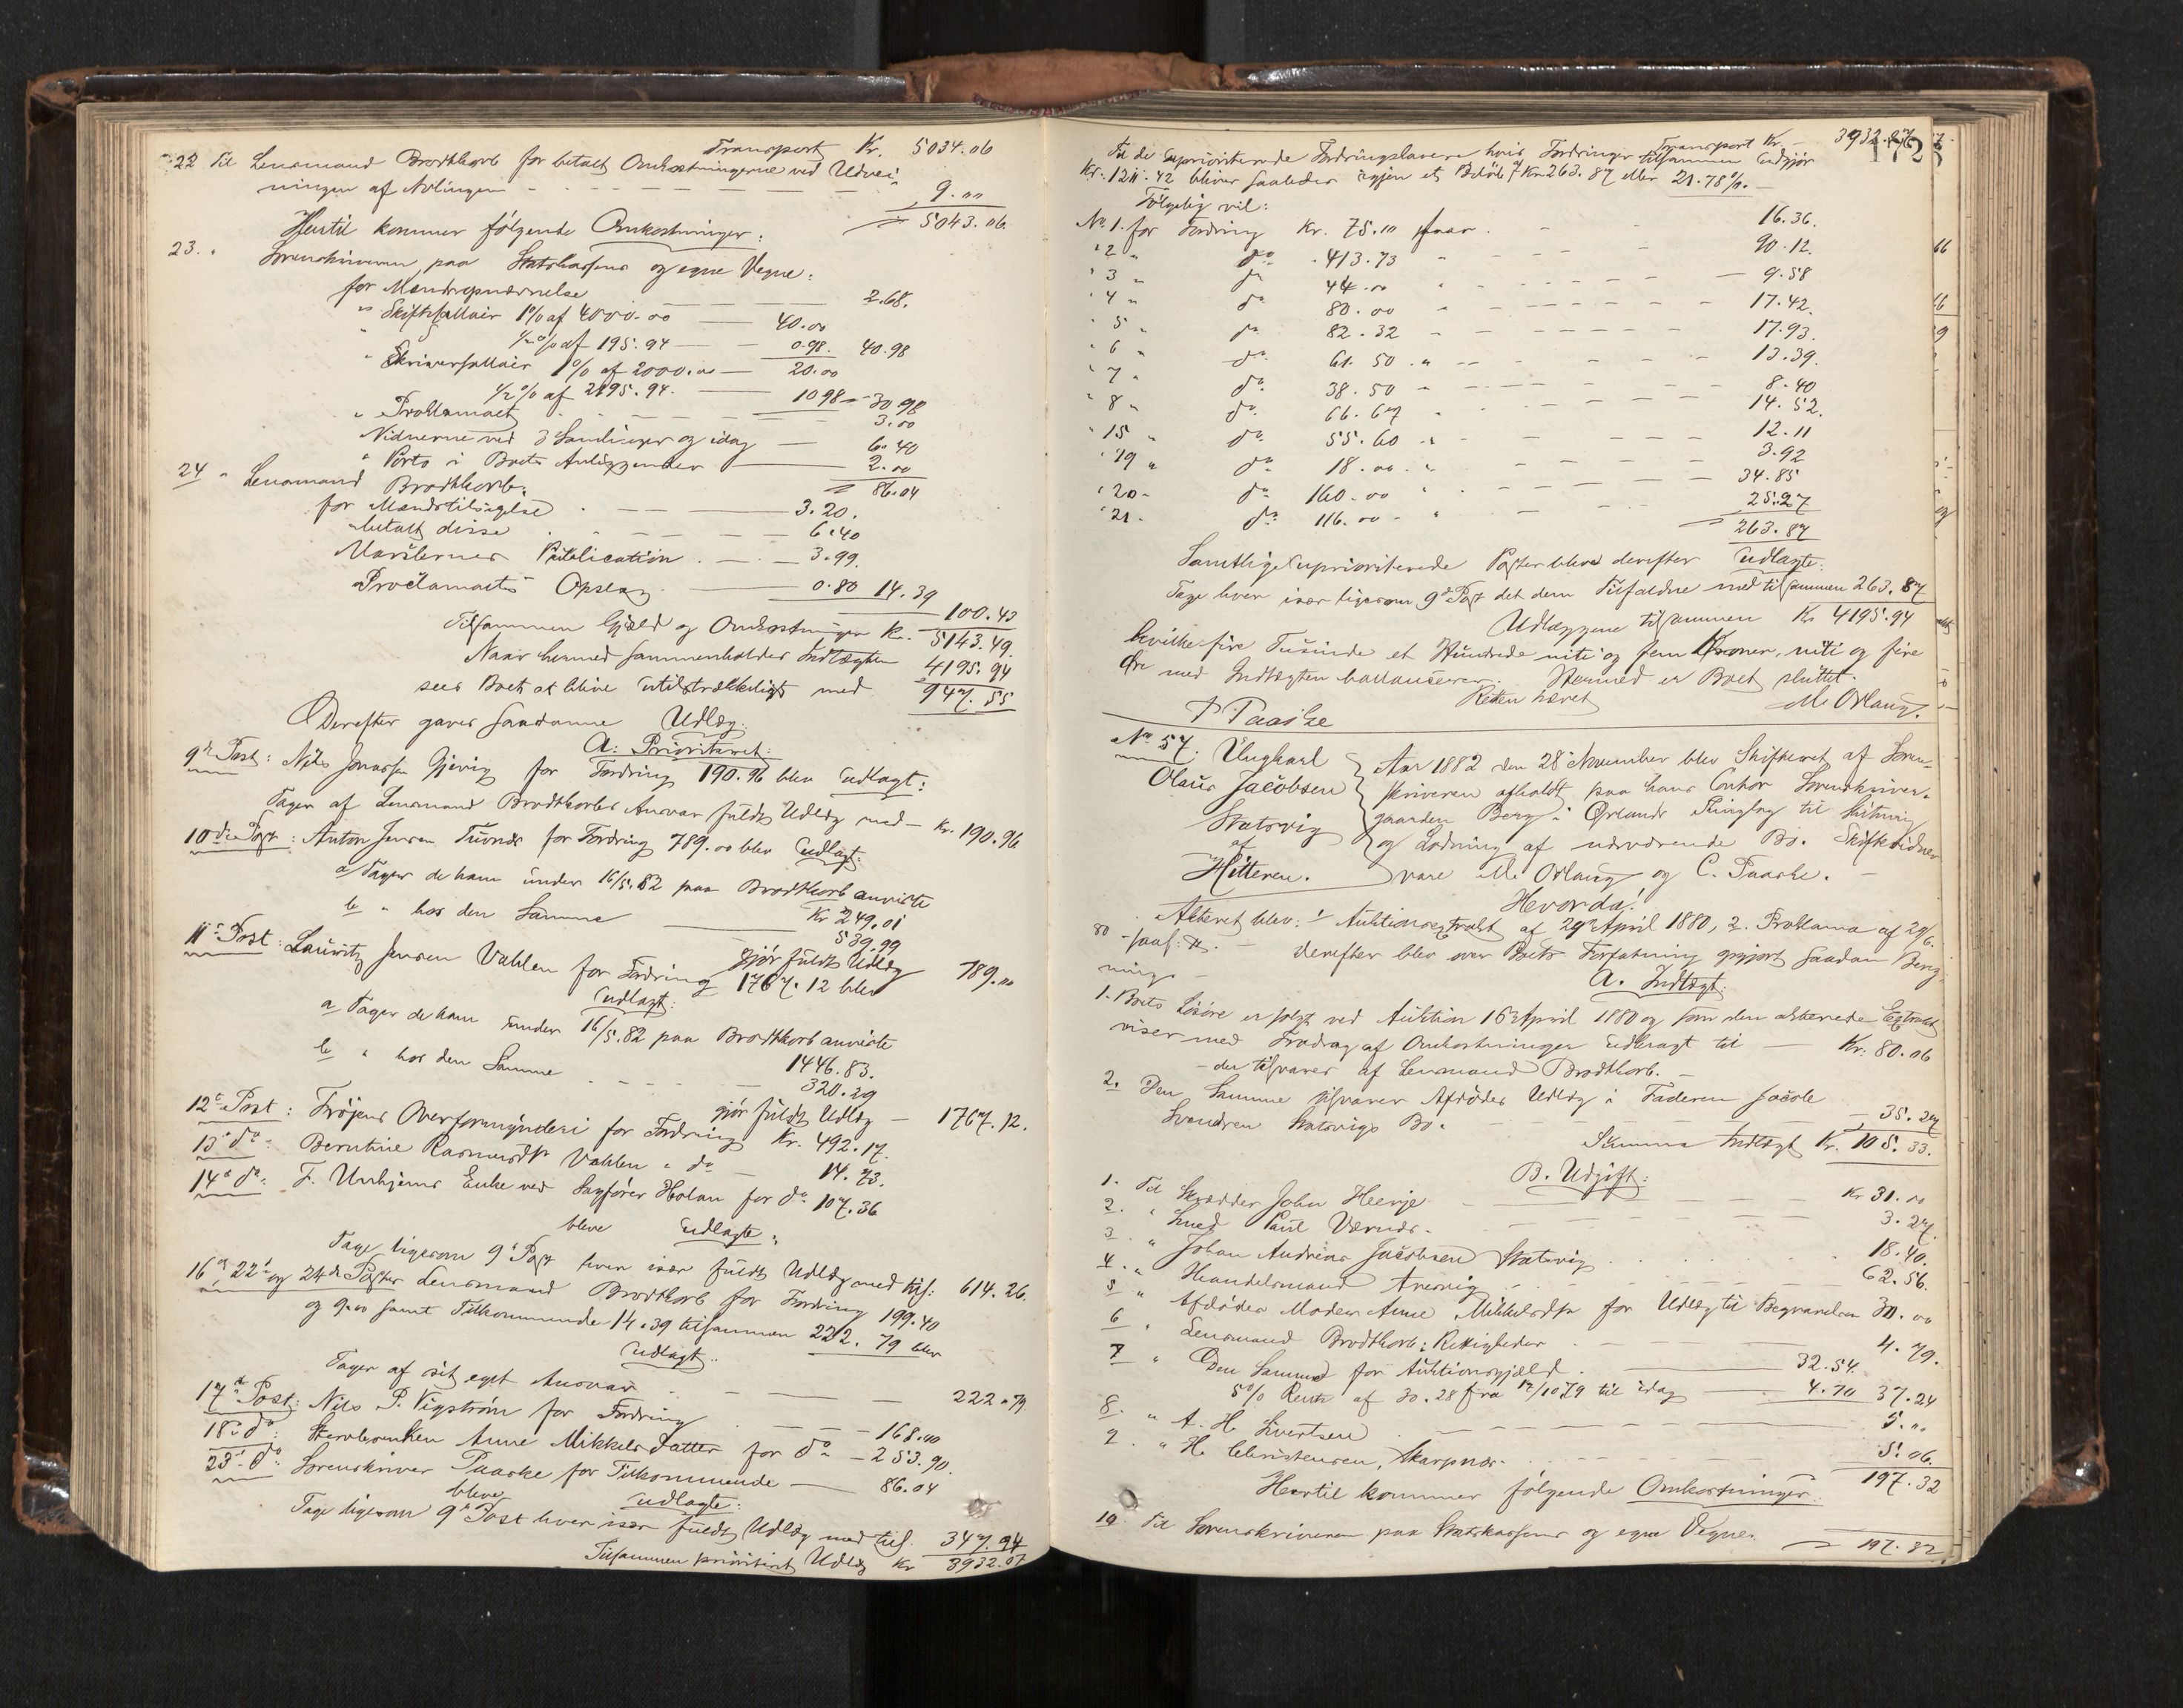 Transport Kr. 5034.06
22 Til Lensmand Brodtkorb for betalt Omkostningerne ved Udvei-
ningen af 9.00
= 5043.06.
Hertil kommer følgende Omkostninger:
23. " Sorenskriveren paa Statskassens og egne Vegne:
for Mændsopnævnelse 2.68.
" Skiftesallair 1% af 4000.00 — 40.00
" ½% af 195.94 — 0.98. 40.98
" Skriversallair 1% af 2000.00 — 20.00
½% af 2195.94. 10.98 = 30.98
" Proklamaet 3.00
Vidnerne ved 3 Samlinger og idag — 6.40
" Porto i Boets Anliggender 2.00
= 86.04
24 " Lensmand Brodtkorb:
for Mændstilsigelse 3.20.
" betalt disse 6.40
Publication — 3.99.
" Proclamaets Opslag 0.80 14.39
100.43
Tilsammen Gjæld og Omkostninger Kr. 5143.49.
Naar hermed sammenholdes Indtægten 4195.94
sees Boet at blive utilstrækkeligt med 947.55
Derefter gaves saadanne Udlæg:
A: Prioriteret:
9de Post: Nils Jonassen Gjevig for Fordring 190.96 blev udlagt:
Tager af Lensmand Brodtkorbs Ansvar fuldt Udlæg med — Kr. 190.96
10de Post: Anton Jensen for Fordring 789.00 blev udlagt:
a Tager de ham under 16/5.82 paa Brodtkorb anviste
Kr 249.01
b " hos den Samme 539.99
gjør fuldt Udlæg 789.00
11te Post: Lauritz Jensen Vahlen for Fordring 1767.12 blev
udlagt:
a Tager de ham under 16/5.82 paa Brodtkorb anviste
1446.83.
b " hos den Samme 320.29
gjør fuldt Udlæg — 1767.12.
12te Post: Frøjens Overformynderi for Fordring Kr. 492.17.
13de do: Berntine Rasmusdtr Vahlen " do 14.73.
14de do: F. Unhjems Enke ved Sagfører Holan for do 107.36
bleve udlagte:
Tage ligesom 9de Post hver især fuldt Udlæg med tils: 614.26.
16de, 22de og 24de Poster Lensmand Brodtkorb for Fordring 199.40
og 9.00 samt Tilkommende 14.39 tilsammen 222.79 blev
udlagt:
Tager af sit eget Ansvar 222.79
17de Post: Nils P. Vigstrøm for Fordring — 168.00
18de do: Anne Mikkelsdatter for do — 253.90.
23de do: Sorenskriver Paaske for Tilkommende — 86.04
bleve udlagte:
Tage ligesom 9de Post hver især fuldt Udlæg med tils. 347.94
Tilsammen prioritert Udlæg Kr 3932.07
172
Transport Kr — 3932.07
Til de uprioriterede Fordringshavere hvis Fordringer tilsammen udgjør
Kr. 1211.42 bliver saaledes igjen et Beløb af Kr 263.87 eller 21.78%. —
Følgelig vil:
No 1. for Fordring Kr. 75.10 faar 16.36.
" 2 " do 413.73 90.12.
" 3 " do 44.00 9.58
" 4 " do 80.00 17.42.
" 5 " do 82.32 17.93.
" 6 " do 61.50 13.39.
" 7 " do 38.50 8.40
" 8 " do 66.67 14.52.
" 15 " do 55.60 12.11
" 19 " do 18.00 3.92
" 20 - do 160.00 34.85
" 21 - do 116.00 25.27
= 263.87
Samtlige uprioriterede Poster bleve derefter udlagte:
Tage hver især ligesom 9de Post det dem Tilfaldne med tilsammen 263.87
Udlæggene tilsammen Kr 4195.94
hvilke fire Tusinde et Hundrede niti og fem Kroner, niti og fire
Øre med Indtægten ballancerer. Hermed er Boet sluttet.
Retten hævet
Paaske M. Orlaug.
No 57. Ungkarl Olaus Jacobsen Statsvig af Hitteren.
Aar 1882 den 28 November blev Skifteret af Soren-
skriveren afholdt paa hans Contor Sorenskriver-
gaarden Berg i Ørlands Thinglag til Slutning
og Lodning af nærværende Bo. Skiftevidner
vare M. Orlaug og C. Paaske. —
Hvorda!
Akteret blev: 1 Auktionsextrakt af 29de April 1880, 2. Proklama af 29/6.
80 — derefter blev over Boets Forfatning gjort saadan Bereg-
nings —
A. Indtægt:
1. Boets Løsøre er solgt ved Auktion 16de April 1880 og som den akterede Extrakt
viser med Fradrag af Omkostninger udbragt til — Kr: 80.06
- der tilsvares af Lensmand Brodtkorb. —
2. Den Samme tilsvarer Afdødes Udlæg i Faderen Jacob
Svendsen Statsvigs Bo. — 35.27
Summa Indtægt Kr. 105.33.
B. Udgift:
1. Til Skrædder John Heerje Kr 31.00
2. " Smed Paul 3.27.
3 " Johan Andreas Jacobsen Statsvig 18.40.
4. " Handelsmand 62.56.
5 " Afdødes Moder Anne Mikkelsdtr for Udlæg til Begravelsen 30.00
6 " Lensmand Brodtkorb: Rettigheder 4.79.
7 " Den Samme for Auktionsgjæld 32.54.
5% Rente af 30.28 fra 12/10 79 til idag 4.70 37.24
8. " A. H. Sivertsen 5.00
9. " H. Christensen, 5.06.
197.32
Hertil kommer følgende Omkostninger:
10. Til Sorenskriveren paa Statskassens og egne Vegne.
= 197.32.